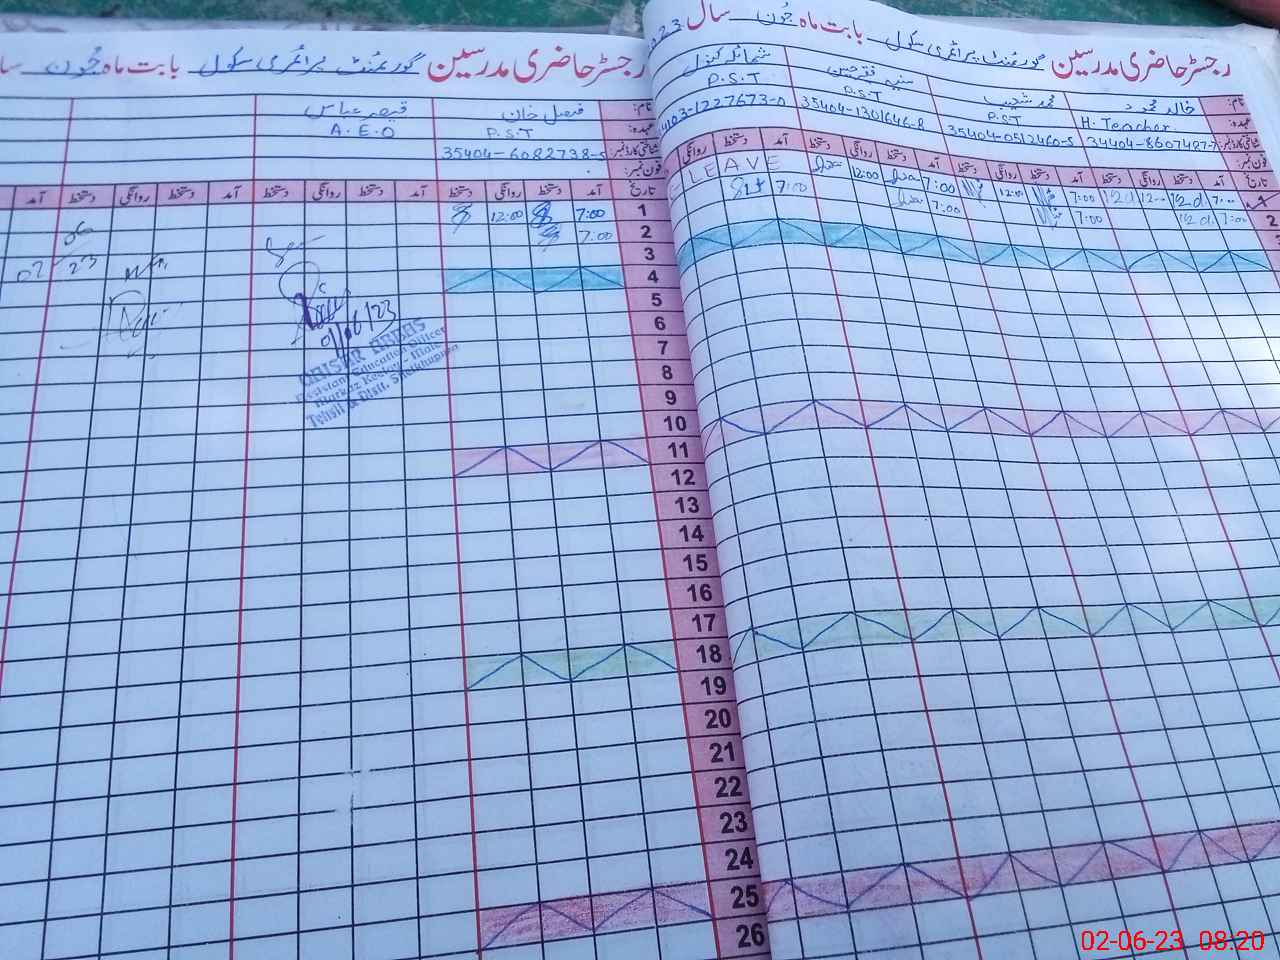 رجسٹر حاضری مدرسین گورنمنٹ پرائمری سکول بابت ماہ جون سال 2023
نام: خالد محمود محمد شعیب شمائلہ کنول
عہدہ: H. Teacher. P.S.T P.S.T P.S.T
شناختی کارڈ نمبر: 34404-8607497-7 35404-0512460-5 35404-1301646-8
فون نمبر:
تاریخ آمد دستخط روانگی دستخط آمد دستخط روانگی دستخط آمد دستخط روانگی دستخط آمد دستخط روانگی
7:00 12:00 7:00 12:00 LEAVE
2 7:00 7:00 7:00 7:00
رجسٹر حاضری مدرسین گورنمنٹ پرائمری سکول بابت ماہ جون
نام: فیصل خان قیصر عباس
عہدہ: P.S.T A.E.O
شناختی کارڈ نمبر: 35404-6082738-5
فون نمبر:
تاریخ آمد دستخط روانگی دستخط آمد دستخط روانگی دستخط آمد دستخط روانگی دستخط آمد
1 7:00 12:00
2 7:00
3
4
5
6
7
8
9
10
11
12
13
14
15
16
17
18
19
20
21
22
23
24
25
26
QAISAR ABBAS
Assistant Education Officer
Tehsil & Distt. Sheikhupura
02-06-23 08:20